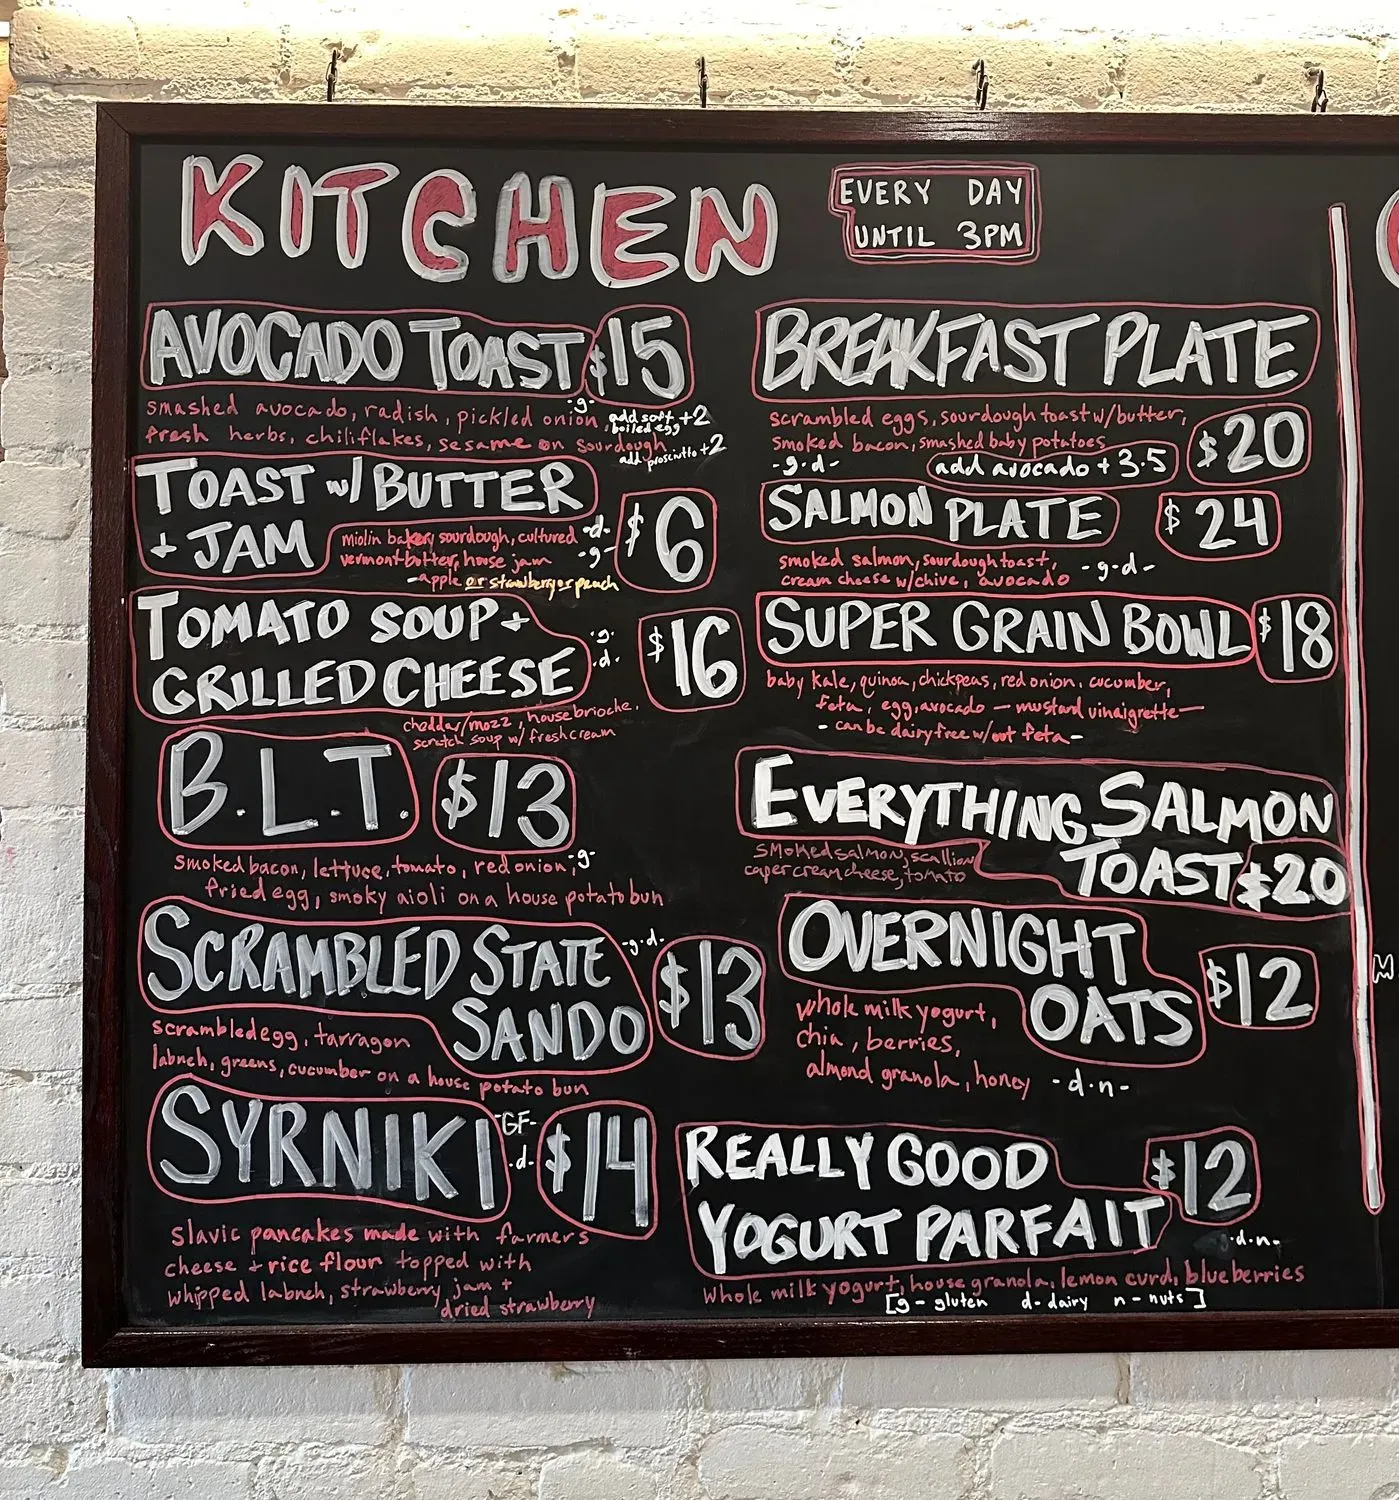 KITCHEN
EVERY DAY
UNTIL 3PM
AVOCADO TOAST $15
-g-
smashed avocado, radish, pickled onion,
fresh herbs, chiliflakes, sesame on sourdough
add soft boiled egg +2
add prosciutto +2
TOAST w/ BUTTER
+ JAM
$6
miolin bakery sourdough, cultured -d-
vermont butter, house jam -g-
-apple or strawberry or peach
TOMATO SOUP +
GRILLED CHEESE
-g-
.d.
$16
cheddar/mozz, house brioche,
scratch soup w/ fresh cream
B.L.T. $13
smoked bacon, lettuce, tomato, red onion, -g-
fried egg, smoky aioli on a house potato bun
SCRAMBLED STATE
SANDO
-g.d-
$13
scrambled egg, tarragon
labneh, greens, cucumber on a house potato bun
SYRNIKI
-GF-
.d.
$14
slavic pancakes made with farmers
cheese + rice flour topped with
whipped labneh, strawberry jam +
dried strawberry
BREAKFAST PLATE
scrambled eggs, sourdough toast w/butter,
smoked bacon, smashed baby potatoes
$20
-g.d-
add avocado + 3.5
SALMON PLATE $24
smoked salmon, sourdough toast,
cream cheese w/chive, avocado
-g-d-
SUPER GRAIN BOWL $18
baby kale, quinoa, chickpeas, red onion, cucumber,
feta, egg, avocado — mustard vinaigrette —
- can be dairy free w/out feta -
EVERYTHING SALMON
TOAST $20
smoked salmon, scallion
caper cream cheese, tomato
OVERNIGHT
OATS
$12
whole milk yogurt,
chia, berries,
almond granola, honey -d.n-
REALLY GOOD
YOGURT PARFAIT
$12
.d.n.
whole milk yogurt, house granola, lemon curd, blueberries
[g- gluten d- dairy n- nuts]